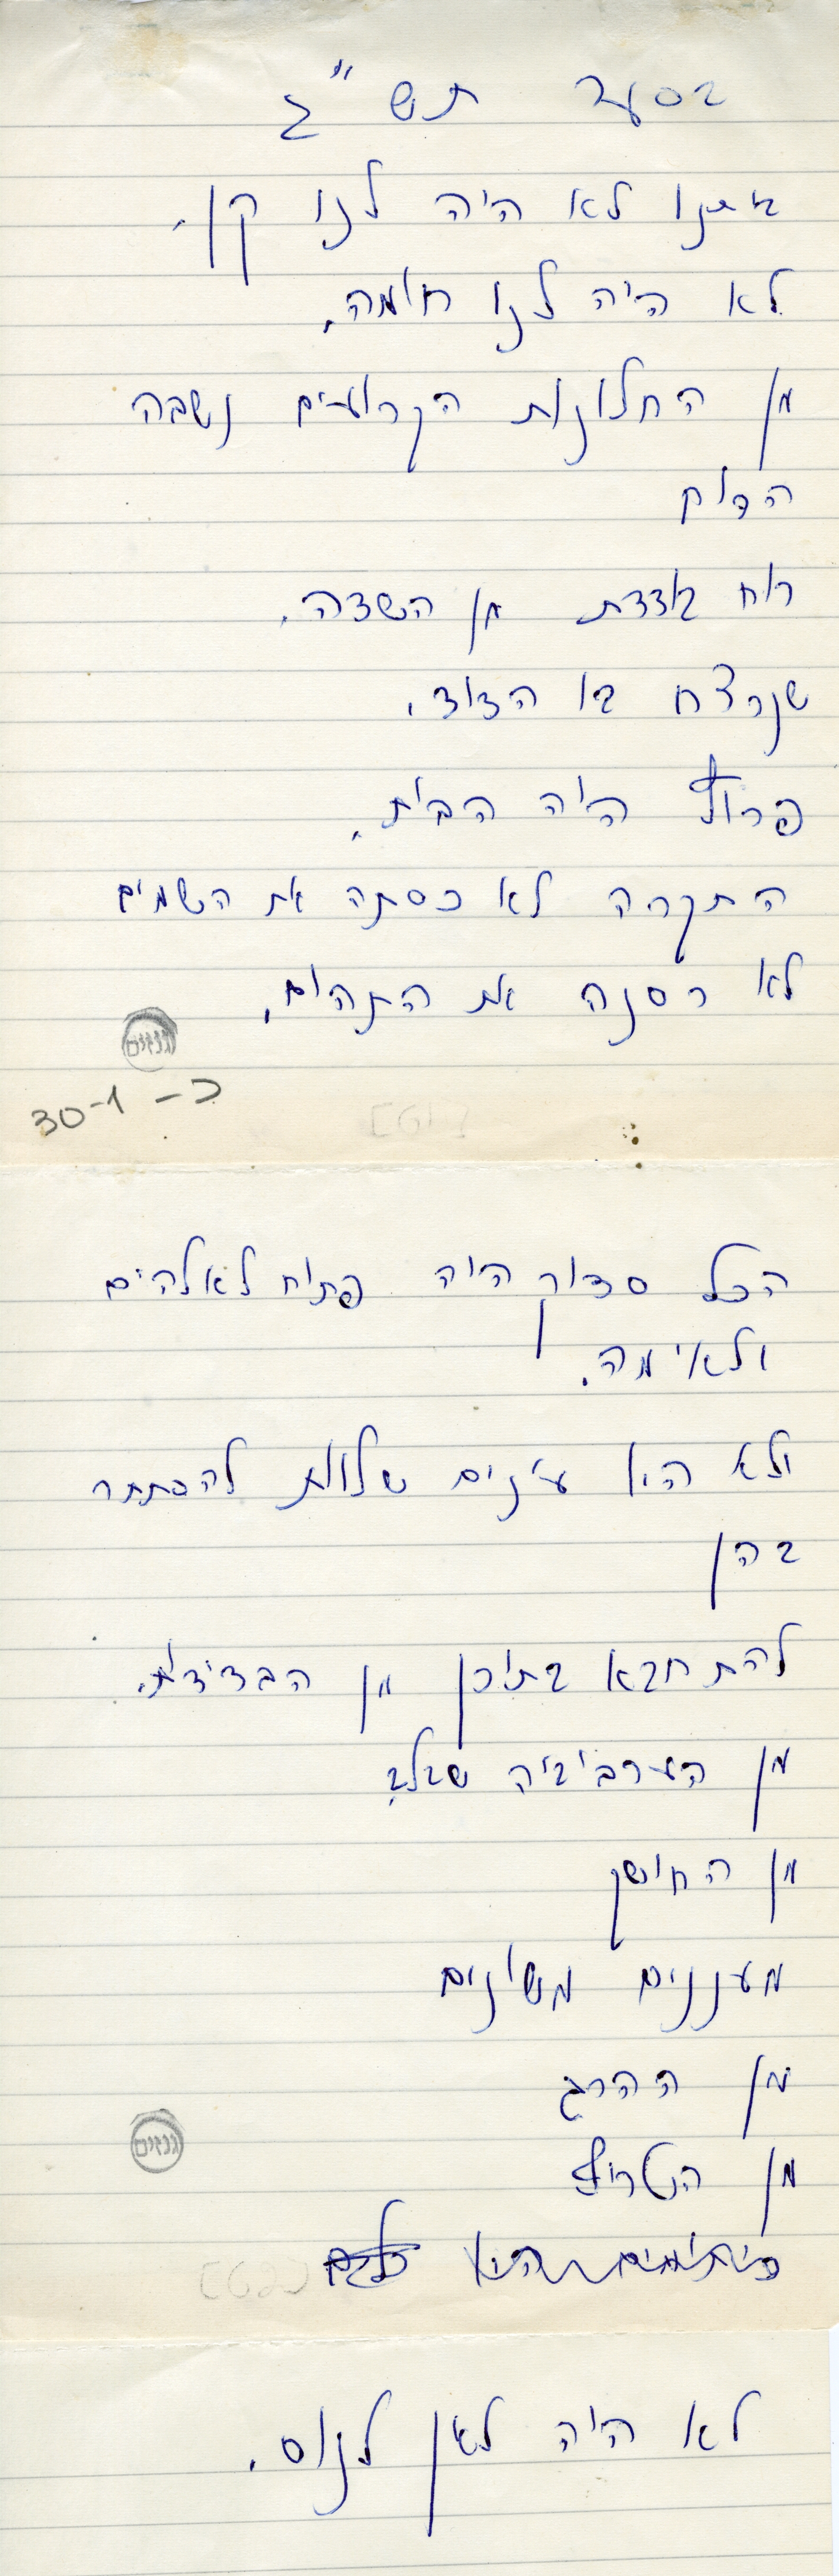 בסער תש"ג
ביתנו לא היה לנו קן.
לא היה לנו חומה.
מן החלונות הקרועים נשבה
הרוח
רוח בודדת מן השדה.
שנרצח בו הדוד.
פרוץ היה הבית.
התקרה לא כסתה את השמים
לא רסנה את התהום.
גנזים
כ– 30-1
הכל סדוק היה פתוח לאלהים
ולאימה.
ולא היו עינים שלוות להסתתר
בהן
להתחבא בתוכן מן הבדידות.
מן הערבוביה שבלב
מן החושך
מעננים משונים
מן ההרג
גנזים
מן הטרוף
לא היה לאן לנוס.